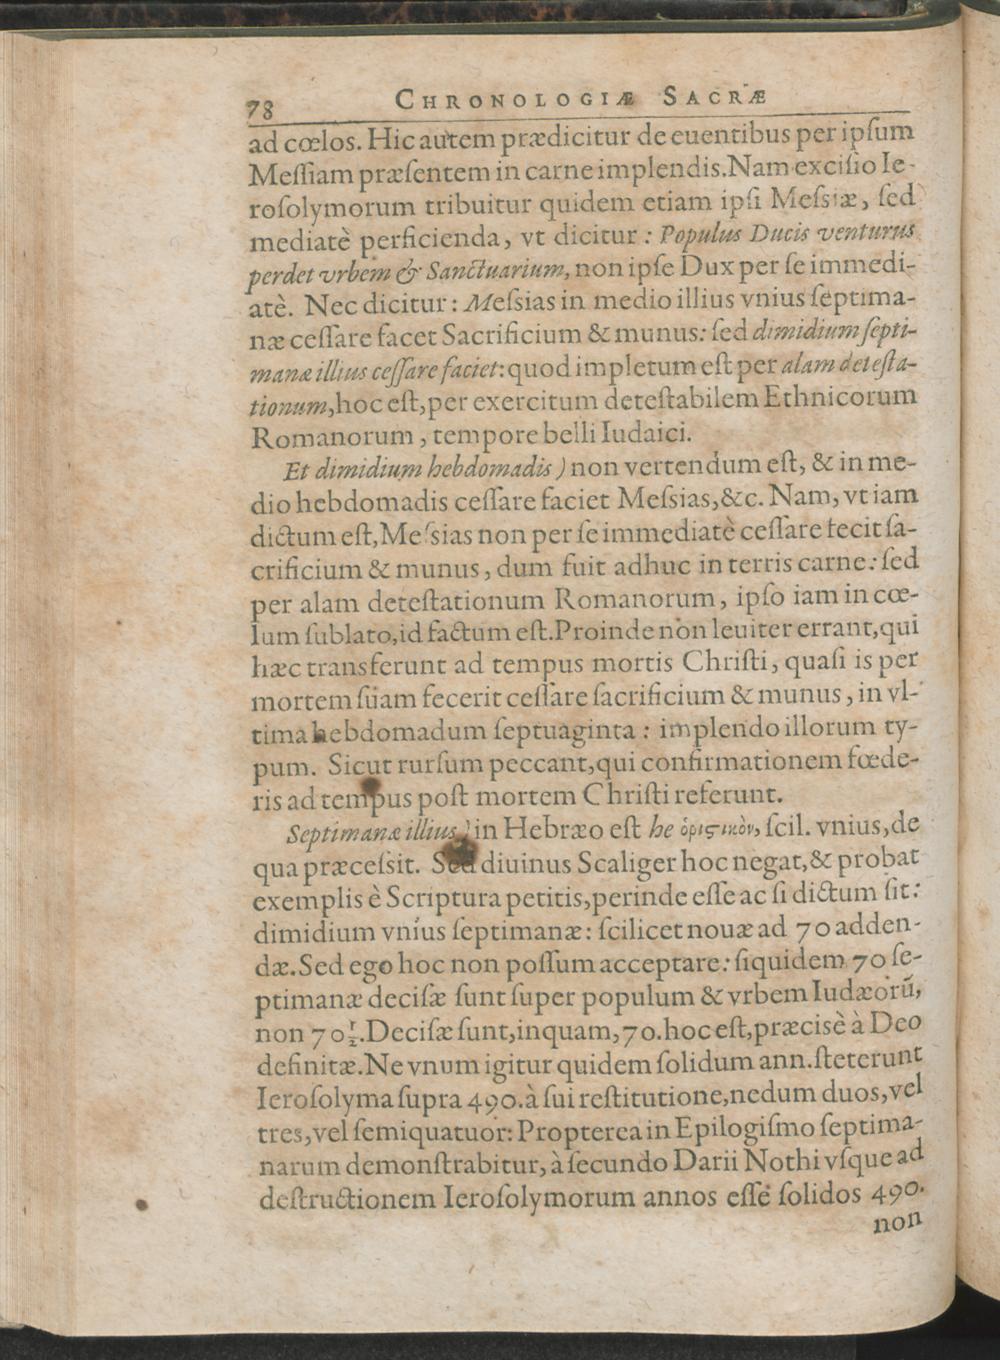 78 CHRONOLOGIÆ SACRÆ
ad cœlos. Hic autem prædicitur de euentibus per ipſum
Meſſiam præſentem in carne implendis. Nam exciſio Ie-
roſolymorum tribuitur quidem etiam ipſi Meſsiæ, ſed
mediatè perficienda, vt dicitur : Populus Ducis venturus
perdet vrbem & Sanctuarium, non ipſe Dux per ſe immedi-
atè. Nec dicitur : Meſsias in medio illius vnius ſeptima-
næ ceſſare facet Sacrificium & munus: ſed dimidium ſepti-
manæ illius ceſſare faciet: quod impletum eſt per alam deteſta-
tionum, hoc eſt, per exercitum deteſtabilem Ethnicorum
Romanorum, tempore belli Iudaici.
Et dimidium hebdomadis ) non vertendum eſt, & in me-
dio hebdomadis ceſſare faciet Meſsias, &c. Nam, vt iam
dictum eſt, Meſsias non per ſe immediatè ceſſare fecit ſa-
crificium & munus, dum fuit adhuc in terris carne: ſed
per alam deteſtationum Romanorum, ipſo iam in cœ-
lum ſublato, id factum eſt. Proinde non leuiter errant, qui
hæc transferunt ad tempus mortis Chriſti, quaſi is per
mortem ſuam fecerit ceſſare ſacrificium & munus, in vl-
tima hebdomadum ſeptuaginta : implendo illorum ty-
pum. Sicut rurſum peccant, qui confirmationem fœde-
ris ad tempus poſt mortem Chriſti referunt.
Septimanæ illius ) in Hebræo eſt he ὁριϛικὸν, ſcil. vnius, de
qua præceſsit. Sed diuinus Scaliger hoc negat, & probat
exemplis è Scriptura petitis, perinde eſſe ac ſi dictum ſit:
dimidium vnius ſeptimanæ: ſcilicet nouæ ad 70 adden-
dæ. Sed ego hoc non poſſum acceptare: ſiquidem 70 ſe-
ptimanæ deciſæ ſunt ſuper populum & vrbem Iudæorū,
non 70½. Deciſæ ſunt, inquam, 70. hoc eſt, præcisè à Deo
definitæ. Ne vnum igitur quidem ſolidum ann. ſteterunt
Ieroſolyma ſupra 490. à ſui reſtitutione, nedum duos, vel
tres, vel ſemiquatuor: Propterea in Epilogiſmo ſeptima-
narum demonſtrabitur, à ſecundo Darii Nothi vſque ad
deſtructionem Ieroſolymorum annos eſſe ſolidos 490.
non